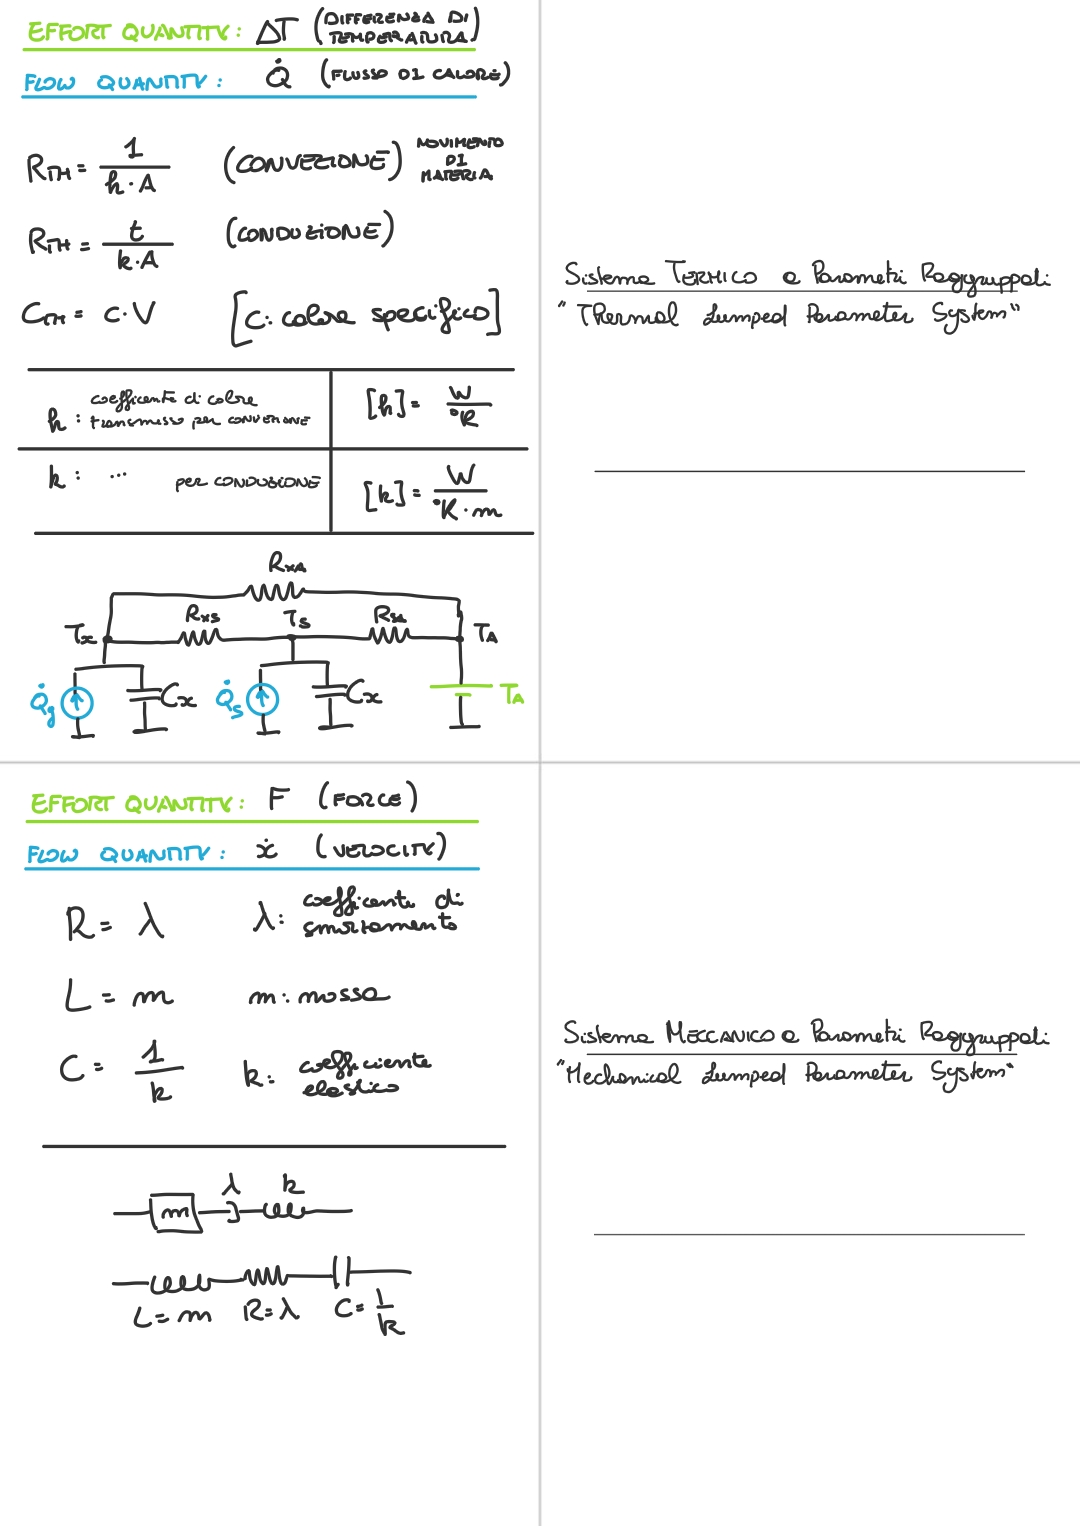 EFFORT QUANTITY: ΔT (DIFFERENZA DI TEMPERATURA)
FLOW QUANTITY: Q̇ (FLUSSO DI CALORE)
R_TH = 1/(h·A) (CONVEZIONE) MOVIMENTO DI MATERIA
R_TH = t/(k·A) (CONDUZIONE)
C_TH = c·V [c: calore specifico]
h: coefficiente di calore trasmesso per CONVEZIONE [h] = W/°K
k: ... per CONDUZIONE [k] = W/(°K·m)
R_XA
T_x R_XS T_S R_SA T_A
Q̇_g C_x Q̇_s C_x T_A
Sistema TERMICO a Parametri Raggruppati
"Thermal Lumped Parameter System"
EFFORT QUANTITY: F (FORCE)
FLOW QUANTITY: ẋ (VELOCITY)
R = λ λ: coefficiente di smorzamento
L = m m: massa
C = 1/k k: coefficiente elastico
m λ k
L = m R = λ C = 1/k
Sistema MECCANICO a Parametri Raggruppati
"Mechanical Lumped Parameter System"